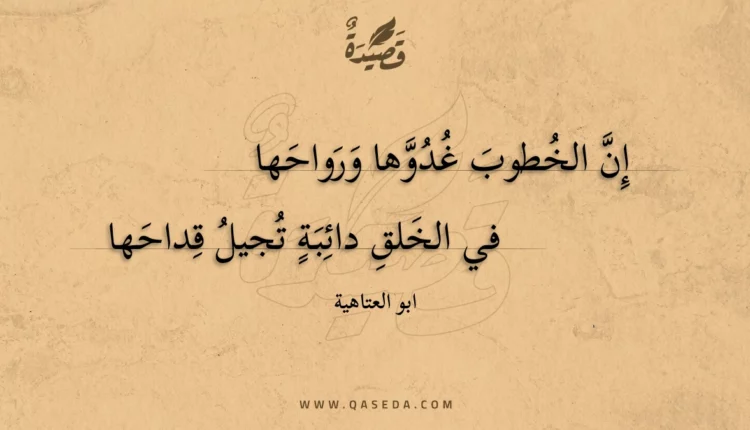 قَصِيْدَةٌ
إِنَّ الخُطوبَ غُدُوَّها وَرَواحَها
في الخَلقِ دائِبَةٍ تُجيلُ قِداحَها
ابو العتاهية
WWW.QASEDA.COM